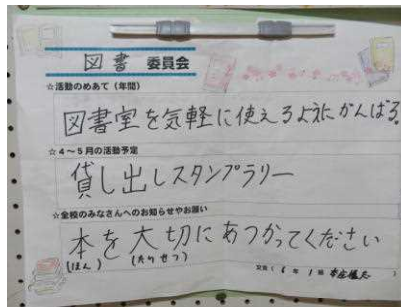 図書 委員会
☆活動のめあて（年間）
図書室を気軽に使えるようにがんばる。
☆4～5月の活動予定
貸し出しスタンプラリー
☆全校のみなさんへのお知らせやお願い
本を大切にあつかってください
(ほん) (たいせつ)
6年1組